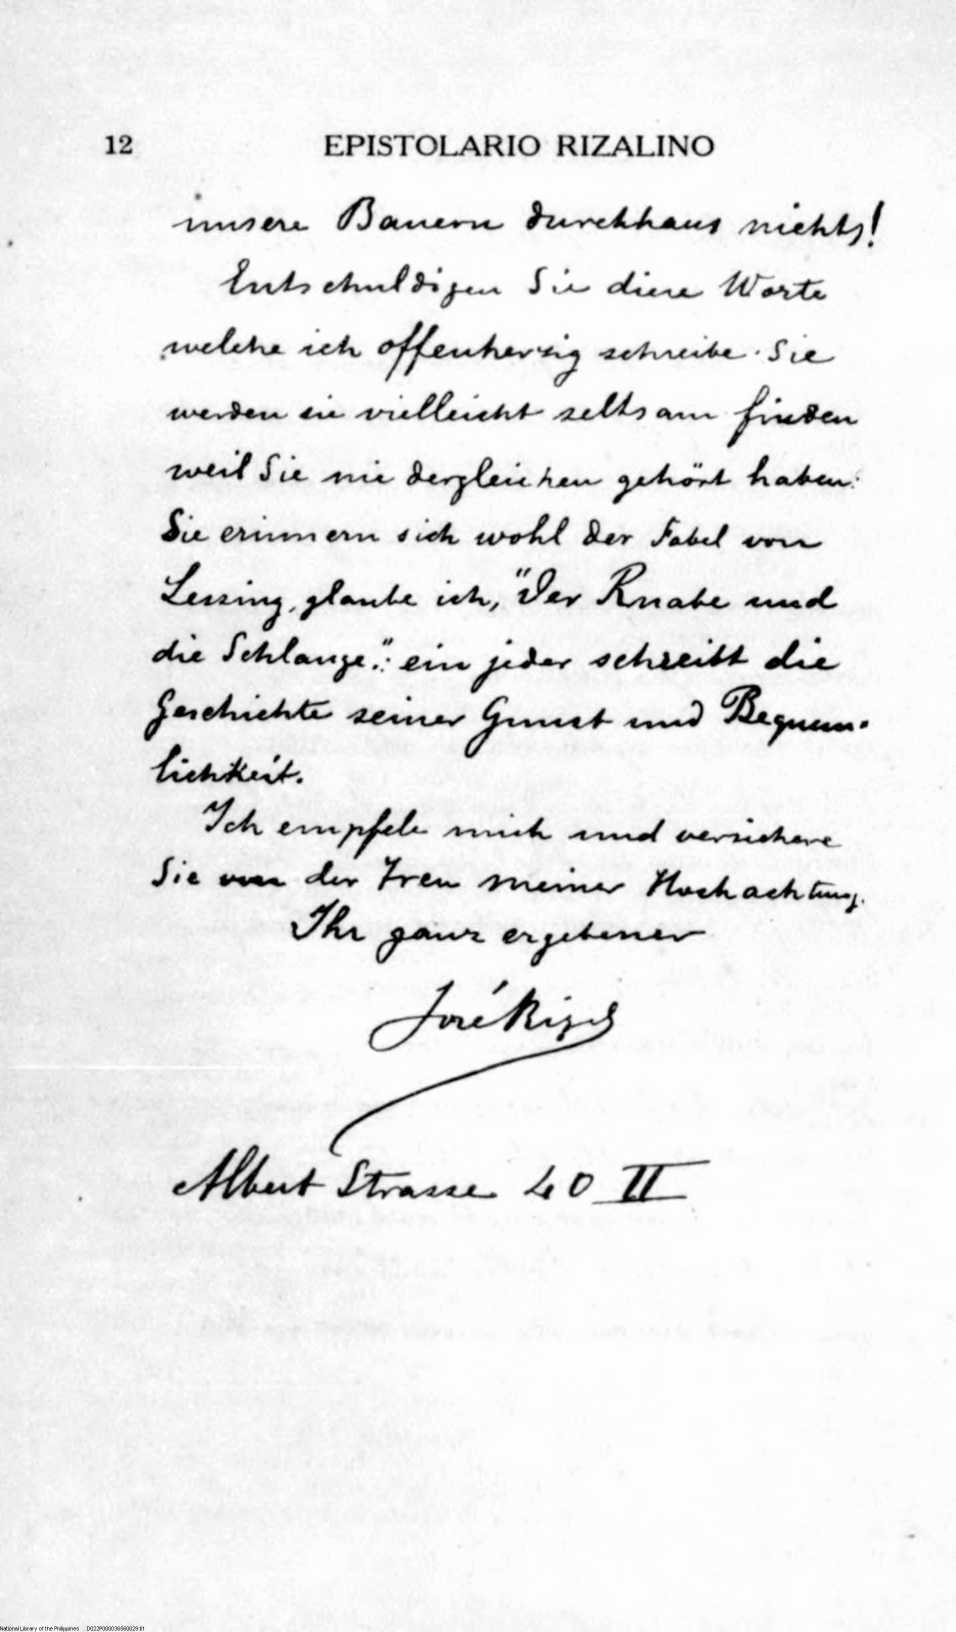 12 EPISTOLARIO RIZALINO
unsere Bauern durchhaus nichts!
Entschuldigen Sie diese Worte
welche ich offenherzig schreibe. Sie
werden sie vielleicht seltsam finden
weil Sie nie dergleichen gehört haben:
Sie erinnern sich wohl der Fabel von
Lessing, glaube ich, "Der Knabe und
die Schlange": ein jeder schreibt die
Geschichte seiner Gunst und Bequem-
lichkeit.
Ich empfele mich und versichere
Sie von der Treu meiner Hochachtung.
Ihr ganz ergebener
José Rizal
Albert Strasse 40 II
National Library of the Philippines